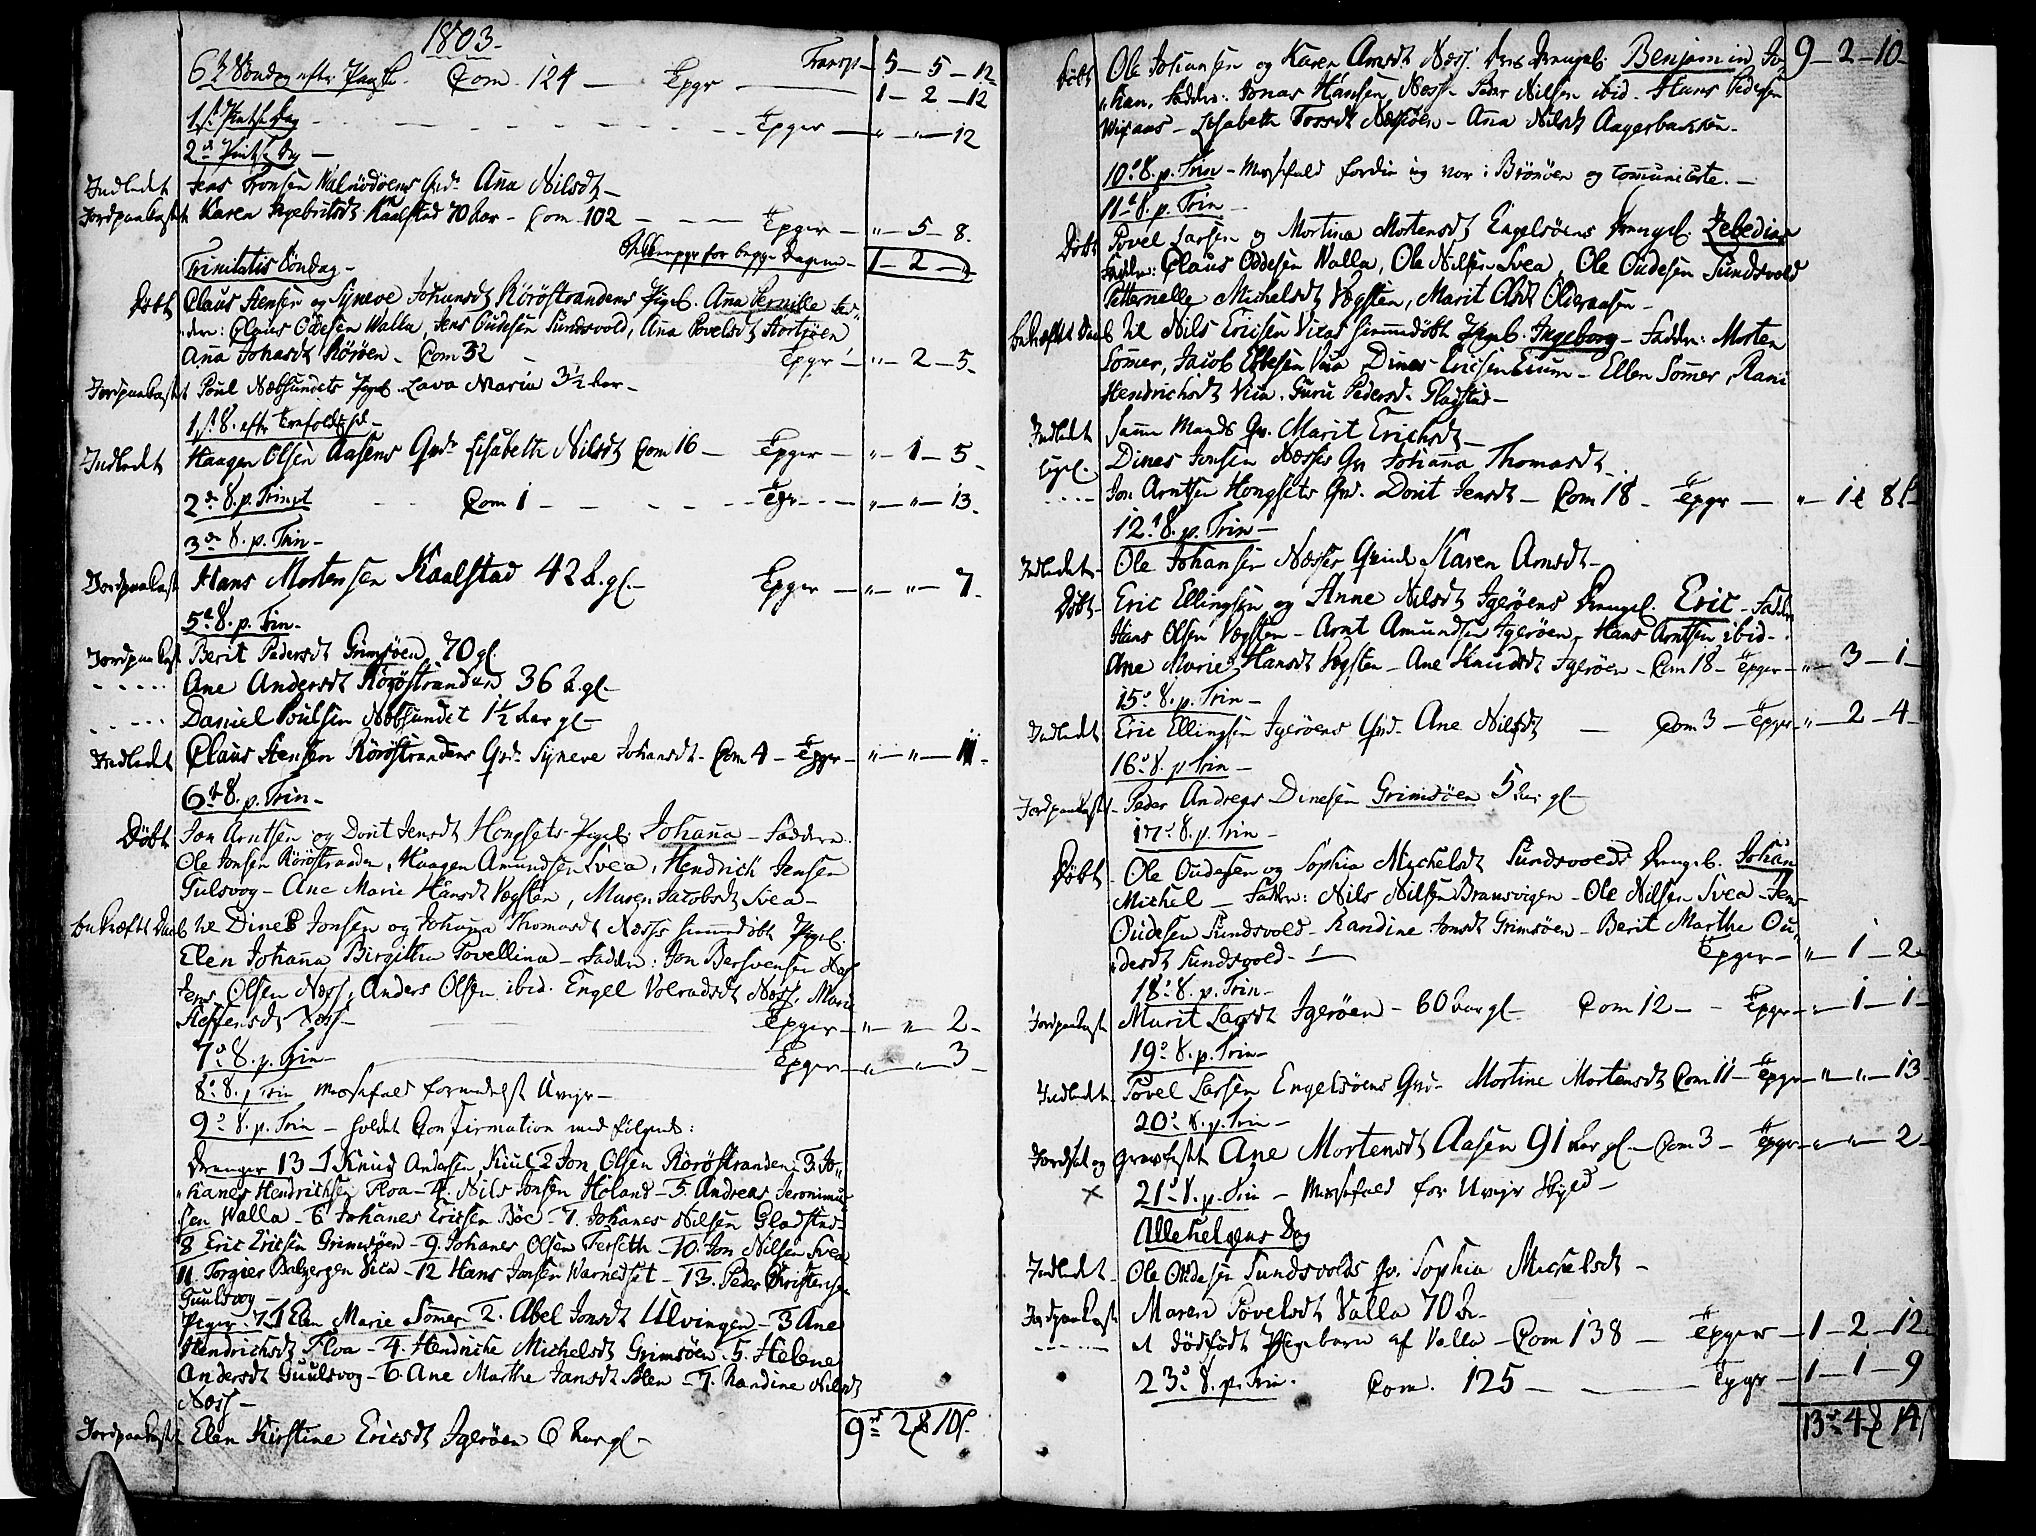 1803.
6te Söndag efter Paaske. Com. 124 — Tepgr — Transp. 5 — 5 — 12
1 — 2 — 12
1ste Pintse dag — Tepger — " — " — 12
2den Pintse dag —
Indledet Jens Tronsen Qvd. Ana Nilsdt —
Jordpaakastet Karen Ingebritsdt Kaalstad 70 Aar — Com. 102 — Tepger — " — 5 — 8.
for begge Dagene — 1 — 2 — "
Trinitatis Söndag —
Döbt Claus Stensen og Syneve Johansdt Röröstrandens Pigeb. Ana Pernille Fad-
dere: Claus Odesen Walla, Jens Oudesen Sundsvold, Ana Povelsdt Stortjöen
Ana Johansdt Röröen — Com 32 — Tepgr — " — 2 — 5.
Jordpaakastet Poul Næbsundets Pigeb. Lava Maria 3½ Aar —
1ste S. efter Trefoldigh. —
Indledet Haagen Olsen Aasens Qvd. Lisabeth Nilsdt Com 16 — Tepger — " — 1 — 5.
2den S. p. Trinit Com 1 — Tepgr — " — " — 13.
3de S. p. Trin —
Jordpaakast Hans Mortensen Kaalstad 42 A. gl. — Tepger — " — " — 7.
5te S. p. Trin.
Jordpaakast Berit Pedersdt Grimsöen 70 gl.
- - - - Ane Andersdt Röröstranden 36 A. gl —
- - - - Daniel Poulsen Næbsundet 1½ Aar gl —
Indledet Claus Stensen Röröstrandens Qvd. Syneve Johansdt — Com 4 — Tepgr — " — " — 11.
6te S. p. Trin —
Döbt Jon Arntsen og Dorit Jensdt Hongsets Pigeb. Johana — Faddere
Ole Jonsen Röröstranden, Haagen Amundsen Svea, Hendrich Jensen
Gulsvog — Ane Marie Hansdt Vegsten, Maren Jacobsdt Svea —
bekræftet Daab til Dines Jonsen og Johana Thomasdt Næsses hiemedöbt Pigeb.
Elen Johana Birgitha Povellina — Faddere: Jon Bersvensen
Jens Olsen Næss, Anders Olsen ibid. Engel Volradsdt Næss, Marie
Steffensdt Næss — Tepger — " — " — 2.
7de S. p. Trin — Tepger — " — " — 3
8de S. p Trin Messefald formedelst Uveir —
9de S. p. Trin — holdet Confirmation med fölgende:
Drenger 13 — 1 Knud Andersen 2 Jon Olsen Röröstranden — 3 Jo-
hanes Hendrichsen Floa — 4. Nils Jonsen Höland — 5. Andreas Jeronimus-
sen Walla — 6 Johanes Ericsen Böe — 7. Johanes Nilsen Gladstad
8 Eric Ericsen Grimsöen — 9. Johanes Olsen Ferseth — 10. Jon Nilsen Svea
11. Torgier Balzersen Vica — 12 Hans Jonsen Warnedset — 13. Peder Christensen
Guulsvog —
Piger. 7 — 1 Elen Marie Somer 2. Abel Jonsdt Ulvingen — 3 Ane
Hendrichsdt Floa — 4. Hendriche Michelsdt Grimsöen. 5. Helene
Andersdt Guulsvog — 6. Ane Marthe Jansdt — 7. Randine Nilsdt
Næss —
Jordpaakast Elen Kirstine Ericsdt Igeröen 6 Aar gl — 9 rd 2 10 s.
Döbt Ole Johansen og Karen Arnsdt Næss. deres Drengeb. Benjamin Jo- 9 — 2 — 10
han. Faddere: Jonas Hansen Næss. Peder Nilsen ibid. Hans Pedersen
Lisabeth Torsdt — Ana Nilsdt Aagerbakken —
10de S. p. Trin — Messefald fordi ieg var i Brönöen og comuniserte. —
11te S. p. Trin —
Döbt Povel Larsen og Mortina Mortensdt Engelsöens Drengeb. Zebedias
Faddere: Claus Oddesen Walla, Ole Nilsen Svea, Ole Oudesen Sundsvold
Petternelle Michelsdt Vegsten, Marit Olsdt
bekræftet Daab til Nils Ericsen Vicas hiemedöbt Pigeb. Ingeborg — Faddere: Morten
Somer, Jacob Ellesen Vica, Dines Ericsen — Ellen Somer, Rani
Hendrichsdt Vica. Guru Pedersd. Gladstad —
Indledet Same Mands Qv. Marit Erichsdt —
Ligel. Dines Jonsen Næsses Qv Johana Thomasdt
- - - - Jon Arntsen Hongsets Qvd. Dorit Jensdt — Com 18 — Tepgr — " — 1 8
12te S. p. Trin —
Indledet Ole Johansen Næsses Qvinde Karen Arnsdt —
Döbt Eric Ellingsen og Anne Nilsdt Igeröens Drengeb. Eric — Fadder
Hans Olsen Vegsten — Arnt Amundsen Igeröen, Hans Arntsen ibid —
Ane Marie Hansdt Vegsten — Ane Knudsdt Igeröen — Com 18 — Tepger — " — 3 — 1
15de S. p. Trin —
Indledet Eric Ellingsen Igeröens Qvd. Ane Nilsdt — Com 3 — Tepgr — " — 2 — 4
16de S. p Trin —
Jordpaakastet Peder Andreas Dinesen Grimsöen 5 Aar gl —
17de S. p. Trin —
Döbt Ole Oudesen og Sophia Mychelsdt Sundsvolds Drengeb. Johan
Michel — Fadder: Nils Nilsen Bransvigen — Ole Nilsen Svea — Jens
Oudesen Sundsvold — Randine Jonsdt Grimsöen — Berit Marthe Ou-
desdt Sundsvold — Tepger — " — 1 — 2
18de S. p. Trin —
Jordpaakast Marit Larsdt Igeröen — 60 Aar gl — Com 12 — Tepgr — " — 1 — 1
19de S. p. Trin —
Indledet Povel Larsen Engelsöens Qvd. Mortine Mortensdt Com 11 — Tepgr — " — " — 13
20de S. p. Trin —
Jordfæst og gravfæstet Ane Mortensdt Aasen 91 Aar gl. — Com 3 — Tepgr — " — " — 2
× 21de S. p. Trin — Messefald for Uveirs Skyld —
Allehelgens Dag
Indledet Ole Oudesen Sundsvolds Qv. Sophia Michelsdt —
Jordpaakast Maren Povelsdt Valla 70 A.
- - - - et dödfödt Pigebarn af Valla — Com 138 — Tepger — 1 — 2 — 12
23de S. p. Trin. Com. 125 — Tepgr — 1 — 1 — 9
13 rd 4 14